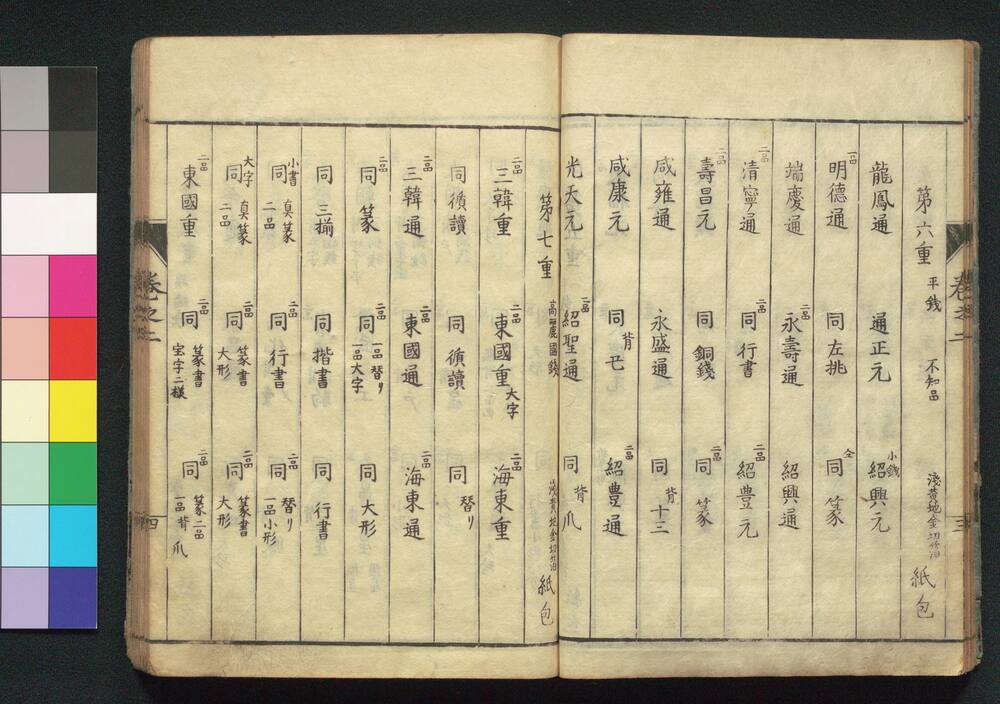 第六重 平銭 不知品 浅黄地金切箔 紙包
龍鳳通 通正元 小銭 紹興元
一品 明徳通 同 左挑 仝 同 篆
端慶通 二品 永壽通 紹興通
二品 清寧通 二品 同 行書 二品 紹豊元
二品 壽昌元 同 銅銭 二品 同 篆
咸雍通 永盛通 同 背十三
咸康元 同 背 二品 紹豊通
光天元 二品 紹聖通 同 背爪
第七重 高麗國銭 浅黄地金切箔 紙包
二品 三韓重 二品 東國重 大字 二品 海東重
同 循讀 同 循讀 同 替リ
二品 三韓通 二品 東國通 二品 海東通
二品 同 篆 二品 同 一品替リ 一品大字 同 大形
同 三揃 同 揩書 同 行書
小書 同 真篆 二品 二品 同 行書 二品 同 替リ 一品小形
大字 同 真篆 二品 二品 同 篆書 大形 二品 同 篆書 大形
二品 東國重 二品 同 篆書 宝字二様 二品 同 篆二品 一品背爪
巻之二 三
巻之二 四